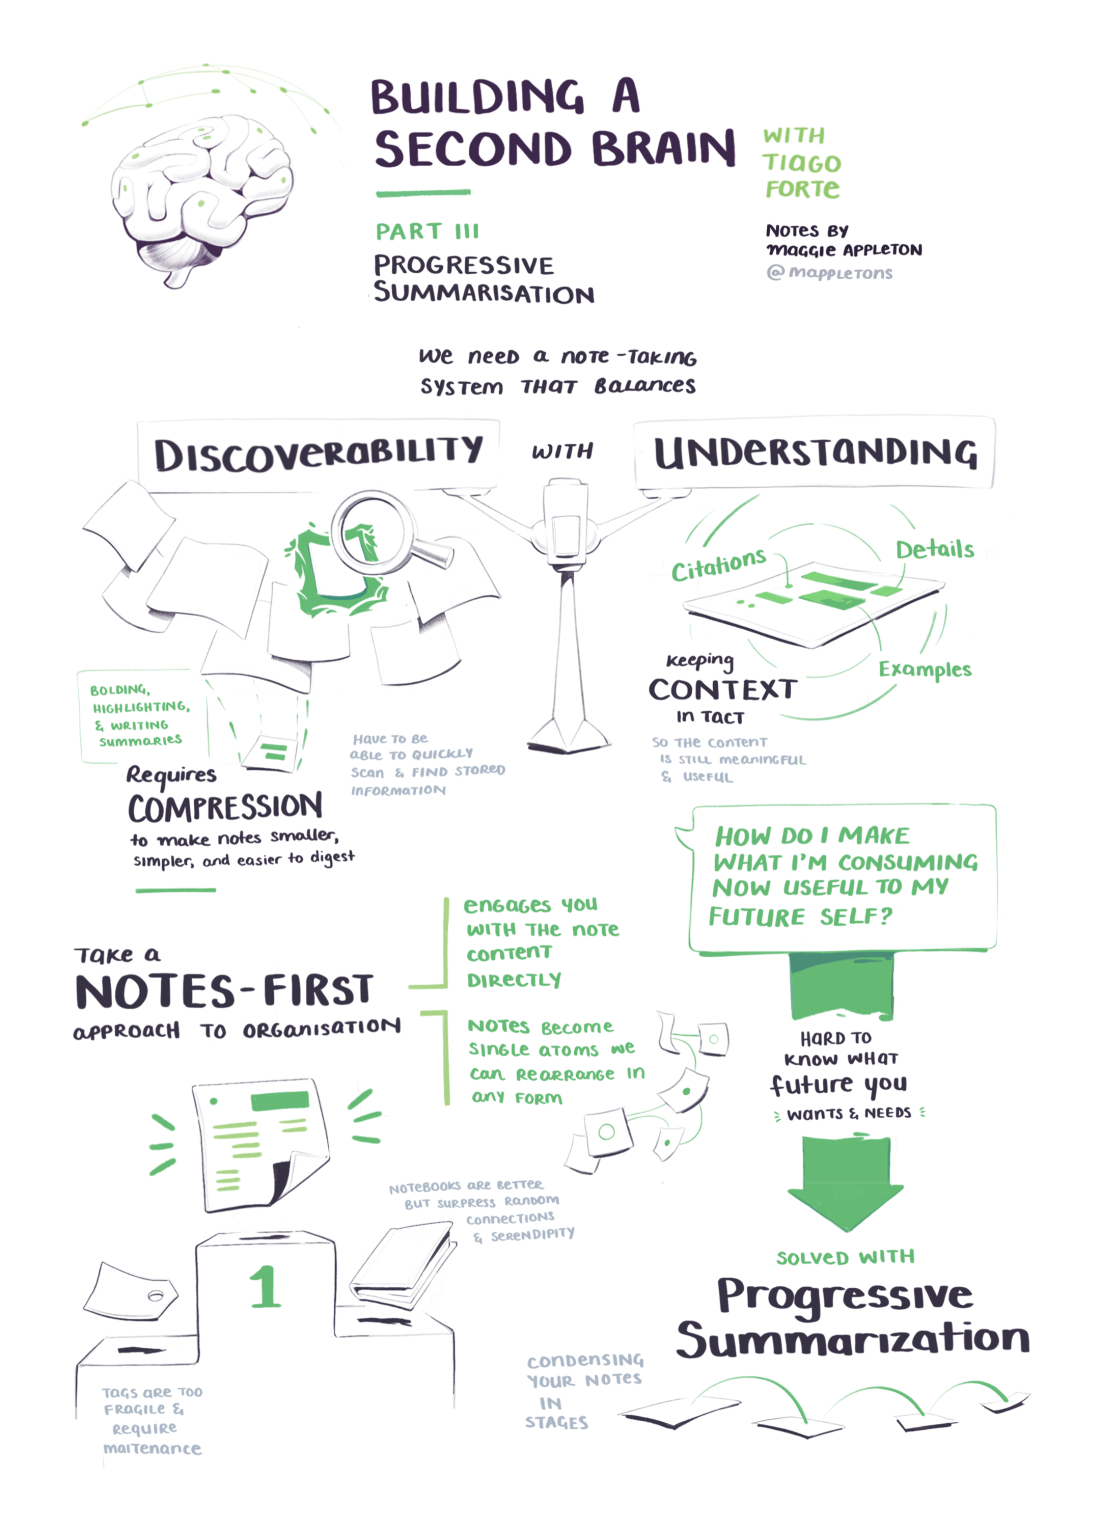 BUILDING A
SECOND BRAIN
WITH
TIAGO
FORTE
PART III
PROGRESSIVE
SUMMARISATION
NOTES BY
MAGGIE APPLETON
@mappletons
WE NEED A NOTE-TAKING
SYSTEM THAT BALANCES
DISCOVERABILITY
WITH
UNDERSTANDING
Citations
Details
Examples
BOLDING,
HIGHLIGHTING,
& WRITING
SUMMARIES
Requires
COMPRESSION
to make notes smaller,
simpler, and easier to digest
HAVE TO BE
ABLE TO QUICKLY
SCAN & FIND STORED
INFORMATION
Keeping
CONTEXT
IN TACT
SO THE CONTENT
IS STILL MEANINGFUL
& USEFUL
HOW DO I MAKE
WHAT I'M CONSUMING
NOW USEFUL TO MY
FUTURE SELF?
TAKE A
NOTES-FIRST
APPROACH TO ORGANISATION
ENGAGES YOU
WITH THE NOTE
CONTENT
DIRECTLY
NOTES BECOME
SINGLE ATOMS WE
CAN REARRANGE IN
ANY FORM
HARD TO
KNOW WHAT
future you
WANTS & NEEDS
NOTEBOOKS ARE BETTER
BUT SURPRESS RANDOM
CONNECTIONS
& SERENDIPITY
1
TAGS ARE TOO
FRAGILE &
REQUIRE
MAITENANCE
SOLVED WITH
Progressive
Summarization
CONDENSING
YOUR NOTES
IN
STAGES